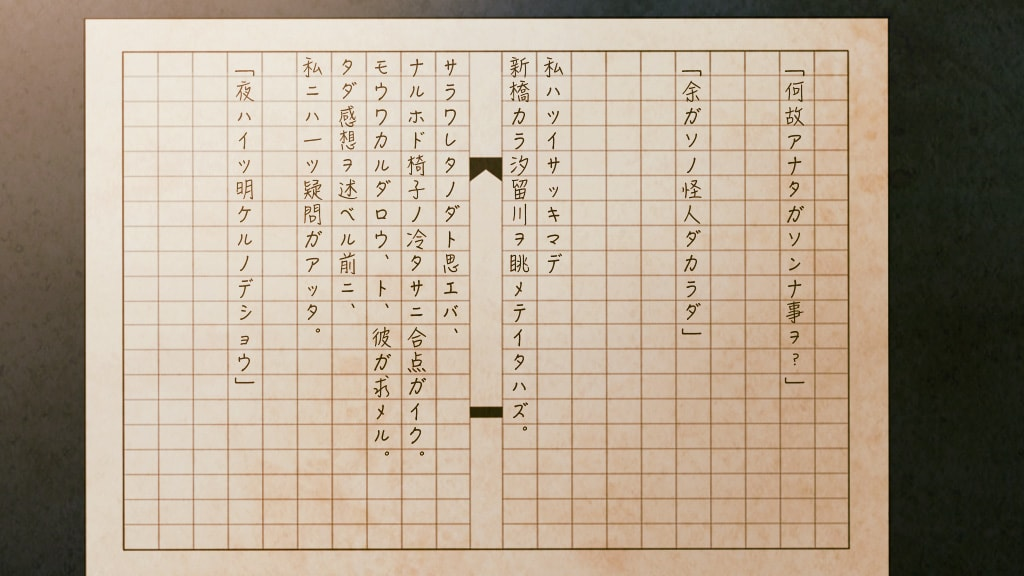 「何故アナタガソンナ事ヲ?」
「余ガソノ怪人ダカラダ」
私ハツイサッキマデ
新橋カラ汐留川ヲ眺メテイタハズ。
サラワレタノダト思エバ、
ナルホド椅子ノ冷タサニ合点ガイク。
モウワカルダロウ、ト、彼ガ求メル。
タダ感想ヲ述ベル前ニ、
私ニハ一ツ疑問ガアッタ。
「夜ハイツ明ケルノデショウ」